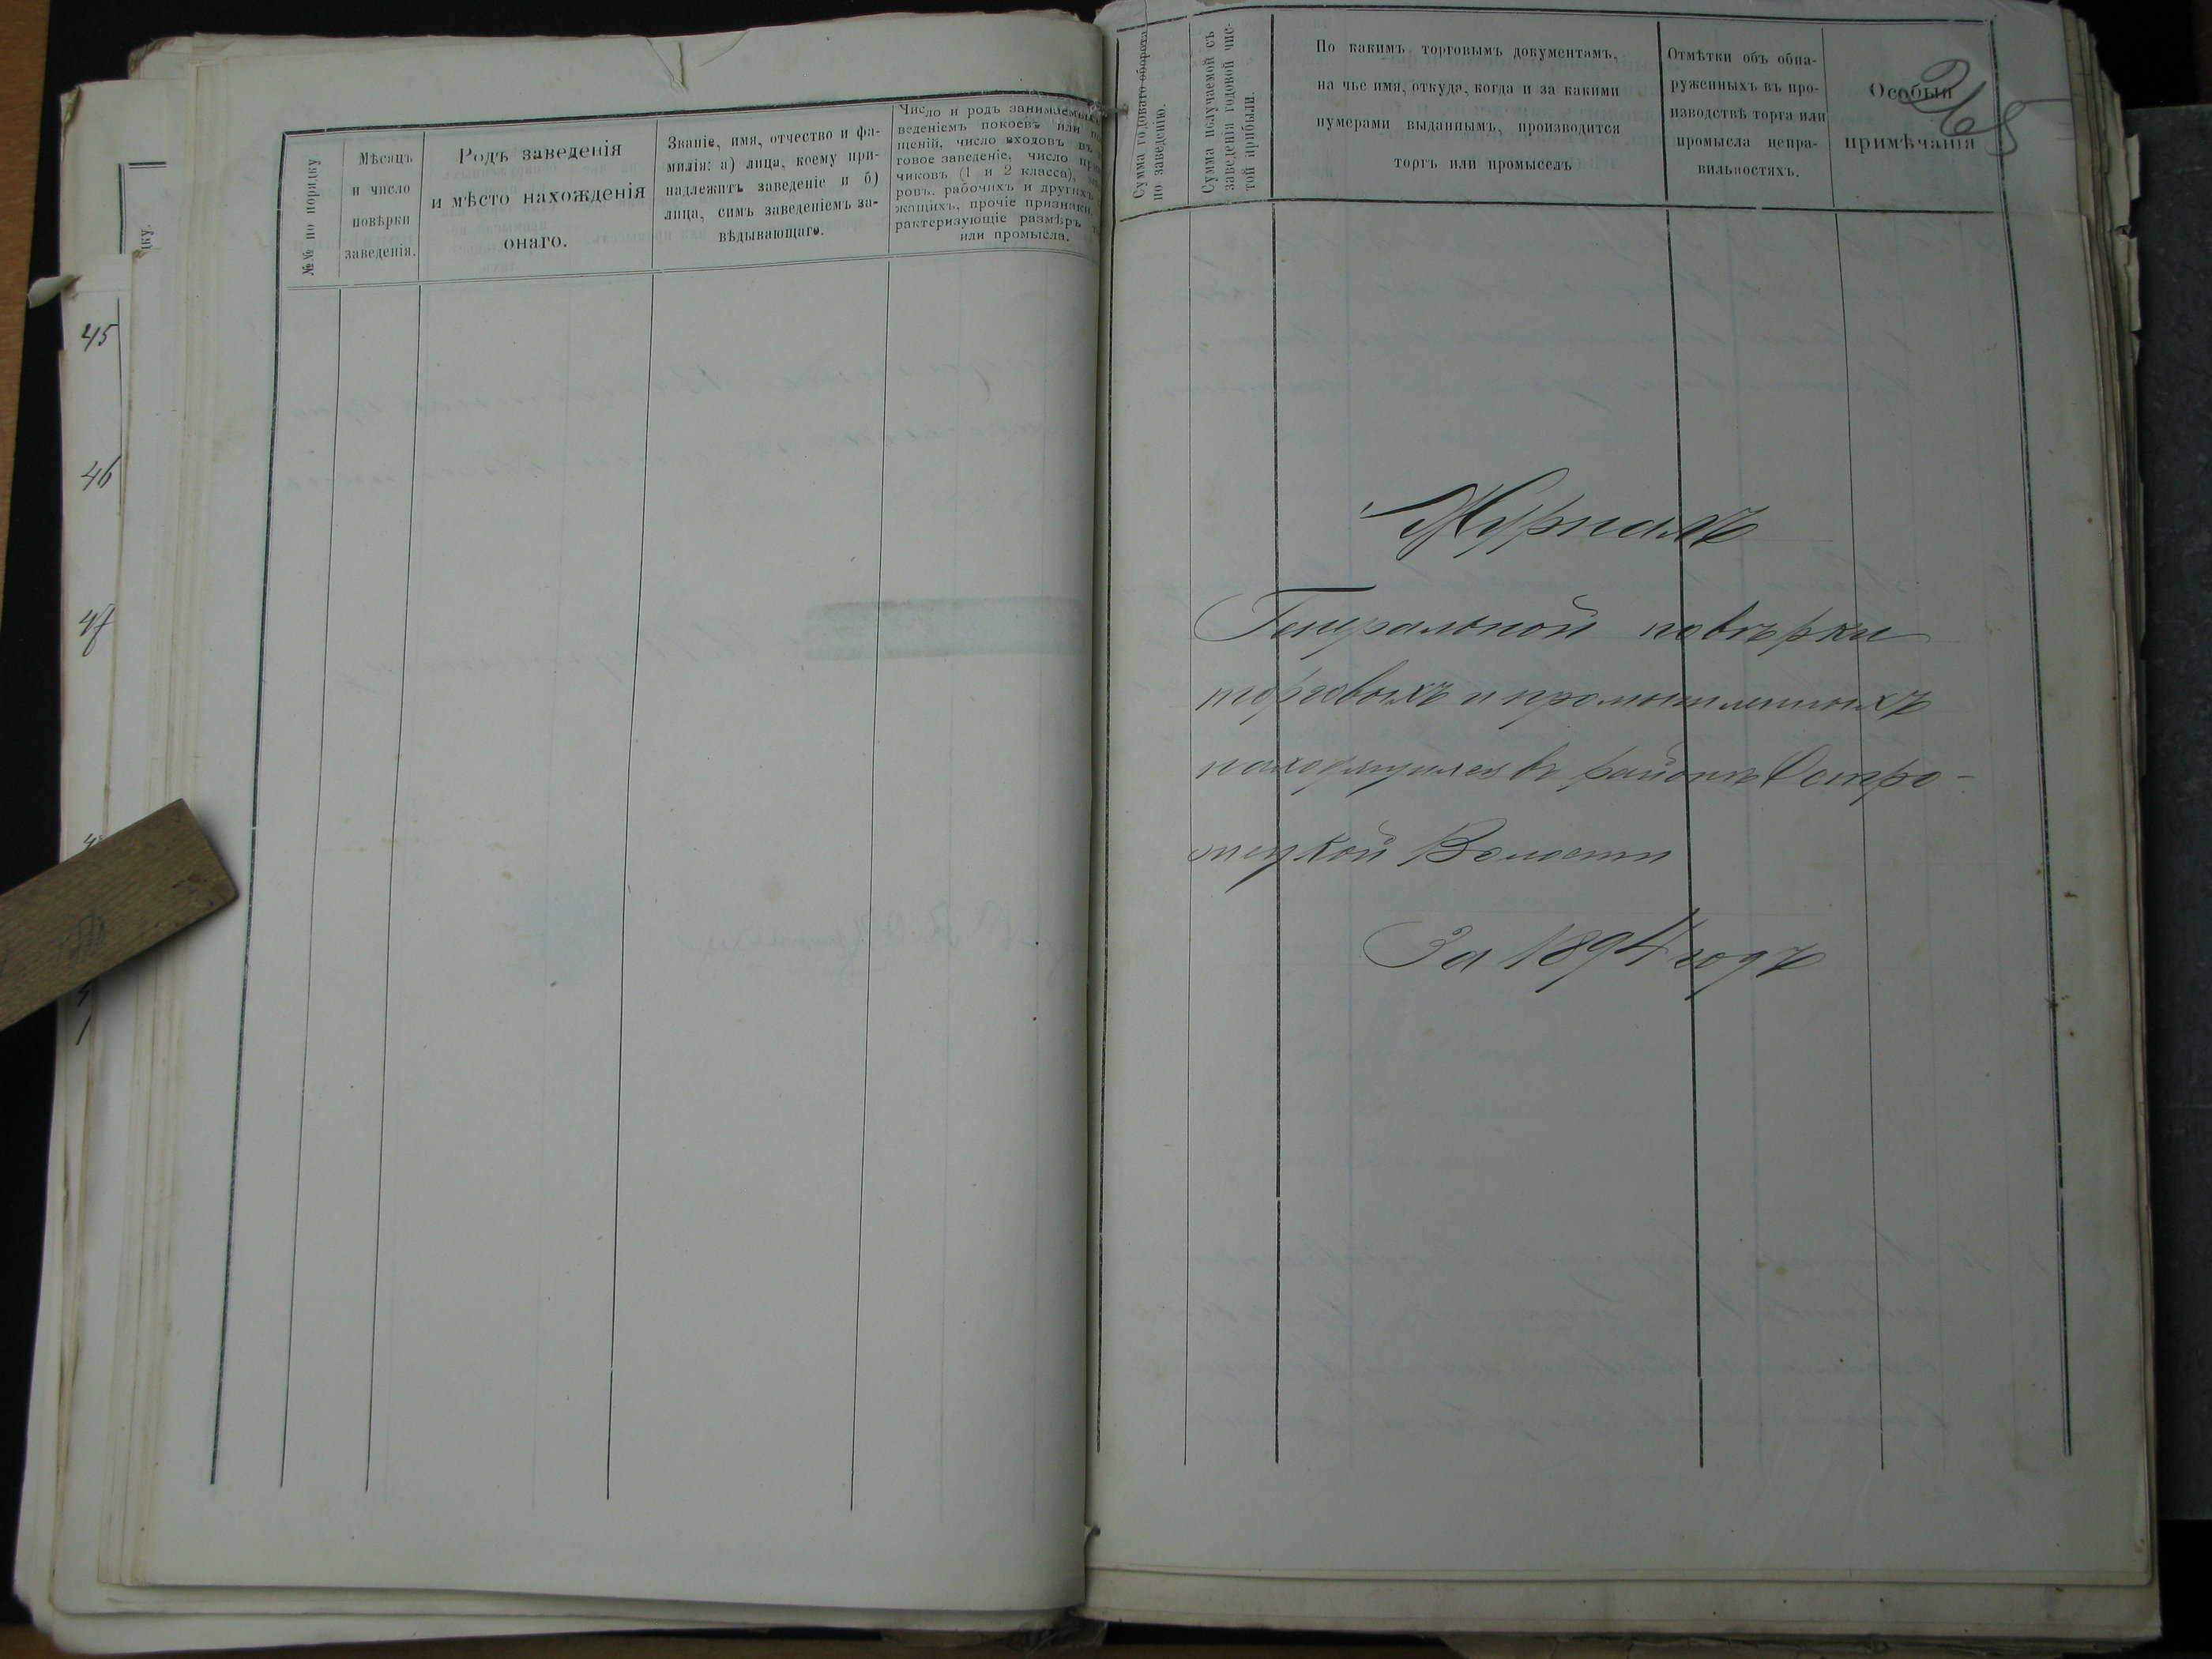 45
46
47
№№ по порядку
Мѣсяцъ
и число
повѣрки
заведенія.
Родъ заведенія
и мѣсто нахожденія
онаго.
Званіе, имя, отчество и фа-
милія: а) лица, коему при-
надлежитъ заведеніе и б)
лица, симъ заведеніемъ за-
вѣдывающаго.
Число и родъ занимаемыхъ
веденіемъ покоевъ или
щеній, число входовъ въ
говое заведеніе, число
чиковъ (1 и 2 класса),
ровъ, рабочихъ и другихъ
жащихъ, прочіе признаки,
рактеризующіе размѣръ
или промысла.
Сумма годоваго оборота
по заведенію.
Сумма получаемой съ
заведенія годовой чис-
той прибыли.
По какимъ торговымъ документамъ,
на чье имя, откуда, когда и за какими
нумерами выданнымъ, производится
торгъ или промыселъ
Отмѣтки объ обна-
руженныхъ въ про-
изводствѣ торга или
промысла непра-
вильностяхъ.
Особыя
примѣчанія
265
Журналъ
Генеральной повѣрки
торговыхъ и промышленныхъ
находящихся въ районѣ Остро-
жецкой Волости
За 1894 годъ